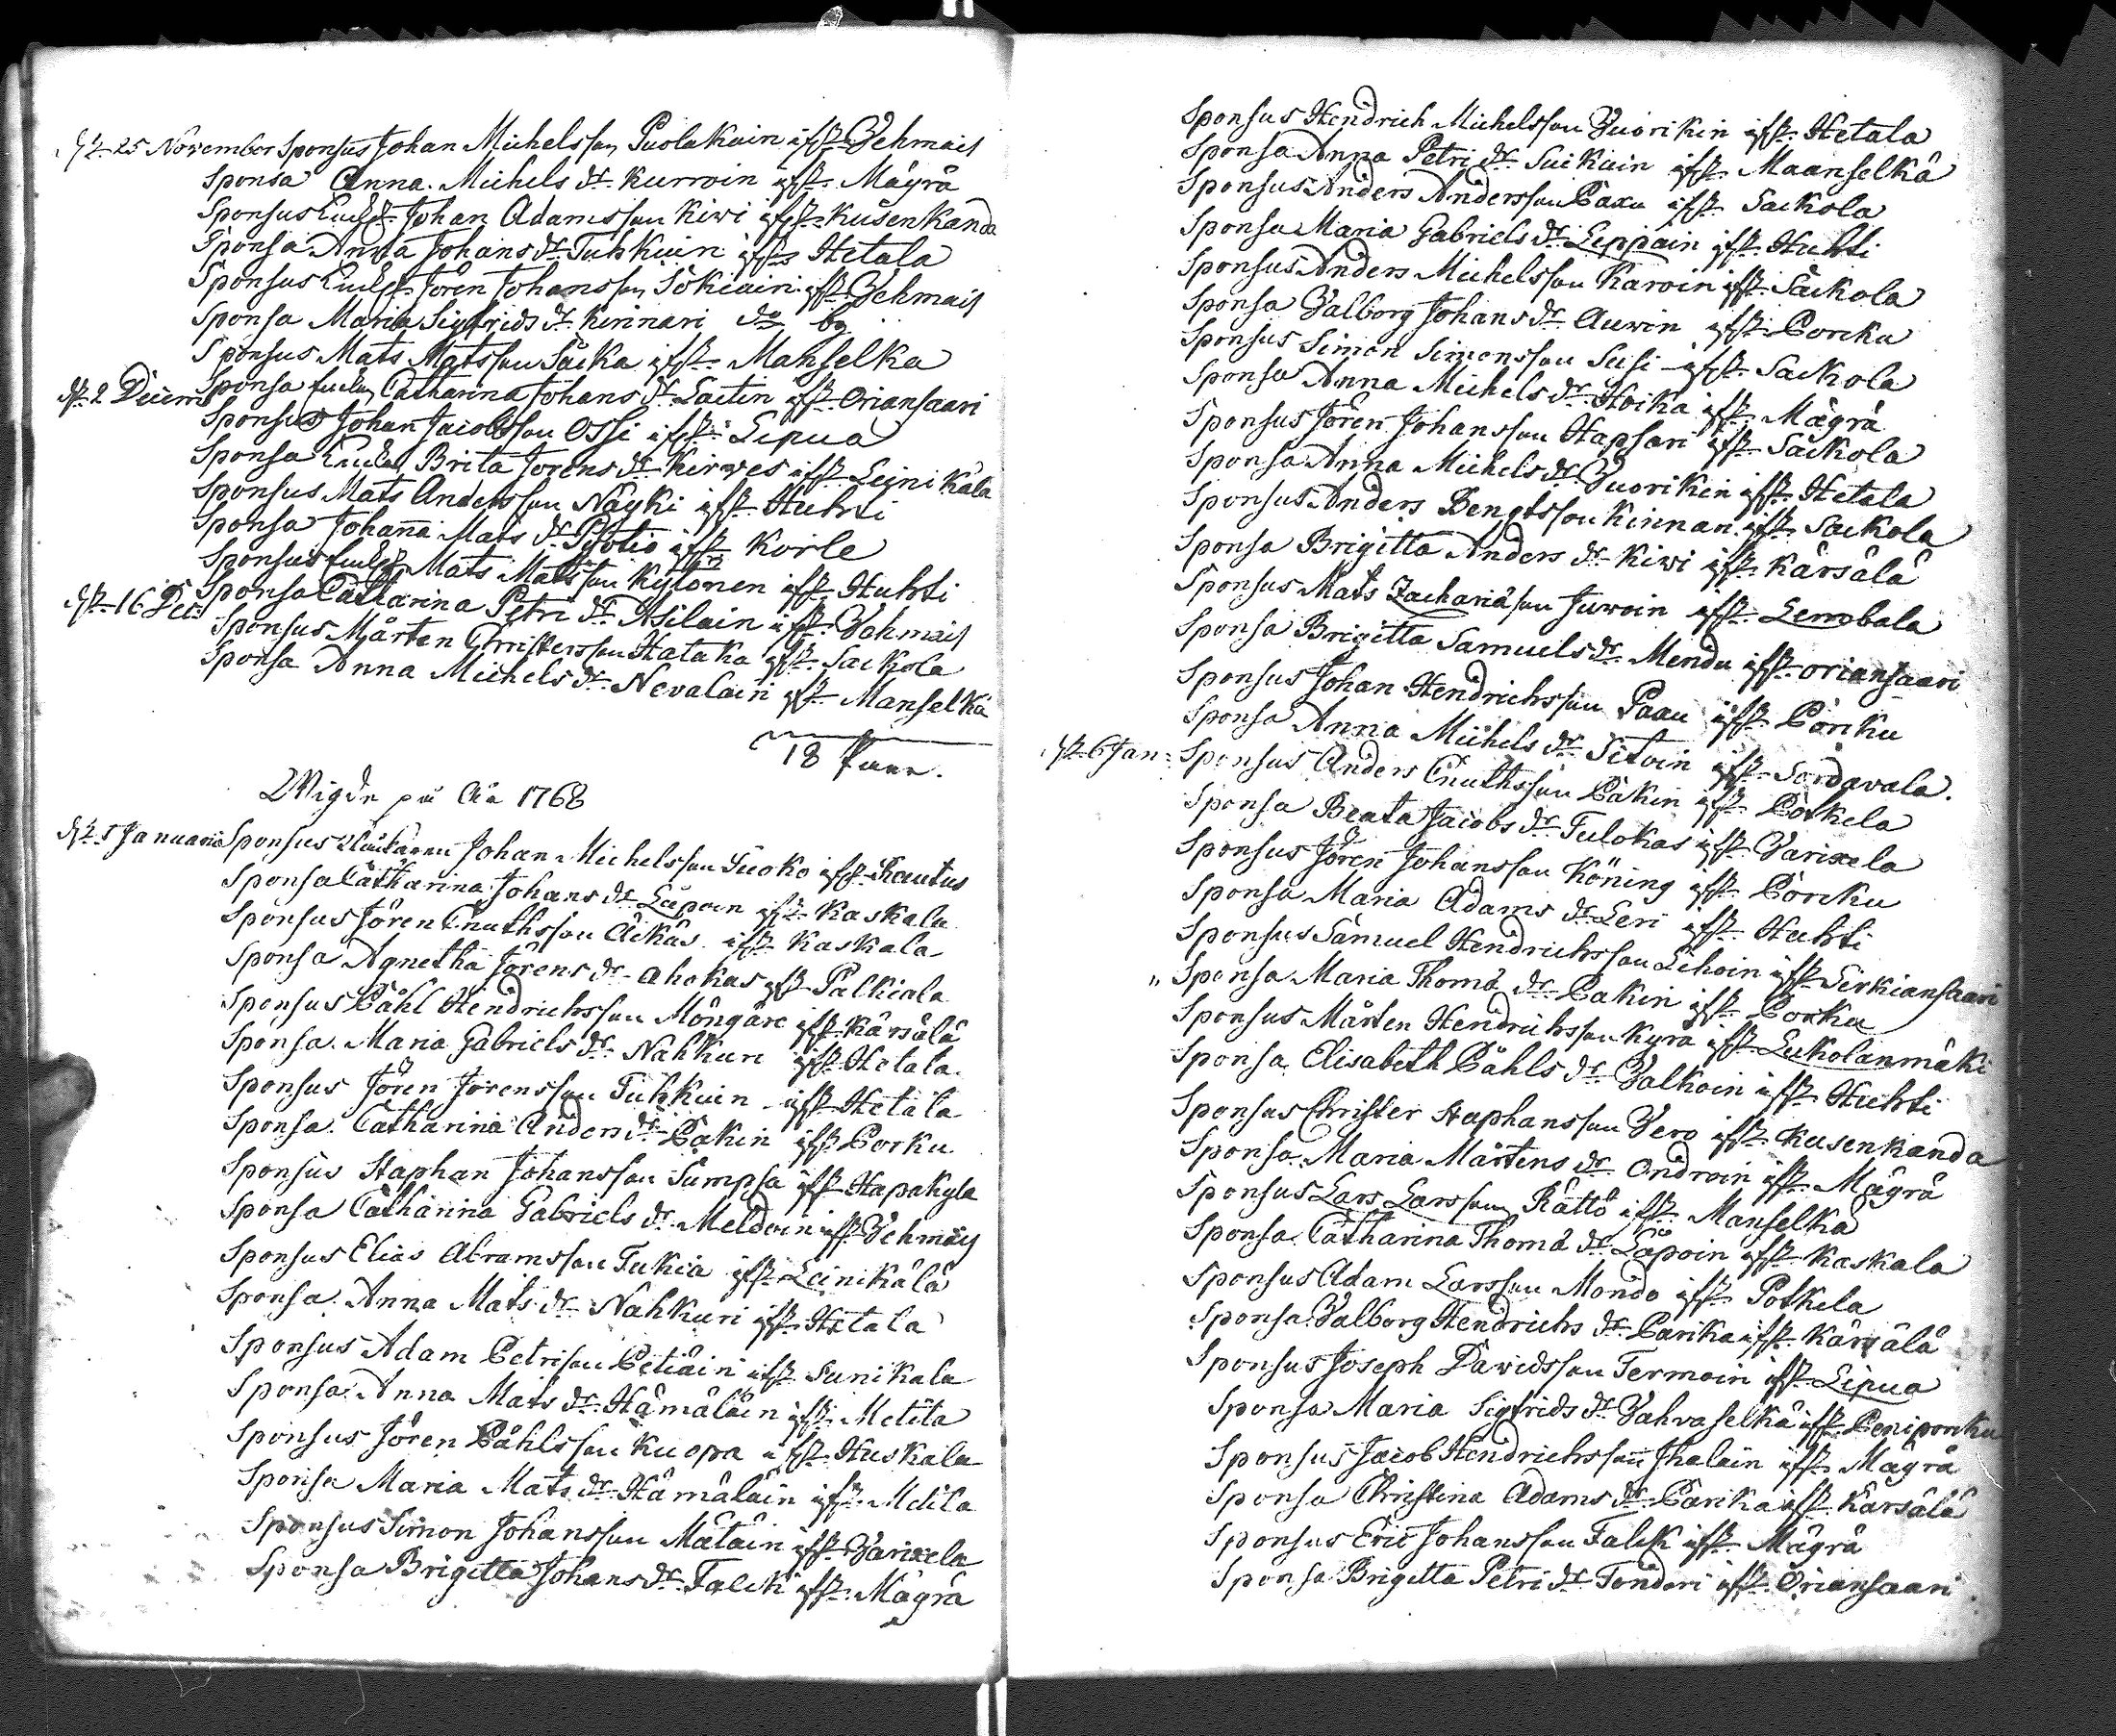 25 November Sponsus Johan Michelsson Puolakain ifr. Vehmais
Sponsa Anna Michels dr. Kurwin ifr. Mägrä
Sponsus Johan Adamsson Kiwi ifr. Kusenkanda
Sponsa Anna Johans dr. Tuhkuin ifr. Hetala
Sponsus Jören Johansson Sokiain ifr. Vehmais
Sponsa Maria Sigfrids dr. Kirinari do by
Sponsus Mats Matsson Säcka ifr. Manselka
2 Decem Sponsa Catharina Johans dr. Laitin ifr. Oriansaari
Sponsus Johan Jacobsson Ossi ifr. Lipua
Sponsa Brita Jörens dr. Kirwes ifr. Leinikälä
Sponsus Mats Andersson Näyki ifr. Huhti
Sponsa Johana Mats dr. ifr. Korle
Sponsus Mats Matsson Kytönen ifr. Huhti
16 Dec: Sponsa Catharina Petri dr. Asilain ifr. Vehmais
Sponsus Mårten Christersson Hataka ifr. Sackola
Sponsa Anna Michels dr. Nevalain ifr. Manselkä
18 Paar.
Wigde på Åå 1768
5 Januarii Sponsus Johan Michelsson Suoko ifr. Rautus
Sponsa Catharina Johans dr. Läpoin ifr. Kaskala
Sponsus Jören Cnuthsson Äikäs ifr. Kaskala
Sponsa Agnetha Jörens dr. Ahokas ifr. Palkiala
Sponsus Påhl Hendrichsson Möngäre ifr. Kärsälä
Sponsa Maria Gabriels dr. Nahkuri ifr. Hetala
Sponsus Jören Jörensson Tuhkuin ifr. Hetala
Sponsa Catharina Anders dr. Pakin ifr. Porku
Sponsus Staphan Johansson Sumpsa ifr. Hapakylä
Sponsa Catharina Gabriels dr. Meldoin ifr. Vehmais
Sponsus Elias Abramsson Tukia ifr. Leinikälä
Sponsa Anna Mats dr. Nahkuri ifr. Hetala
Sponsus Adam Petrisson Petiäin ifr. Sunikala
Sponsa Anna Mats dr. Hämäläin ifr. Metila
Sponsus Jören Påhlsson Kuopa ifr. Huskala
Sponsa Maria Mats dr. Hämäläin ifr. Metila
Sponsus Simon Johansson Mätäin ifr. Varixela
Sponsa Brigitta Johans dr. Falck ifr. Mägrä
Sponsus Hendrich Michelsson Vuorikin ifr. Hetala
Sponsa Anna Petri dr. Suikain ifr. Maanselkä
Sponsus Anders Andersson Paxu ifr. Sackola
Sponsa Maria Gabriels dr. Leppäin ifr. Huhti
Sponsus Anders Michelsson Karwin ifr. Säckola
Sponsa Valborg Johans dr. Auwin ifr. Porcku
Sponsus Simon Simonsson Susi ifr. Sackola
Sponsa Anna Michels dr. Hoika ifr. Mägrä
Sponsus Jören Johansson Hapsari ifr. Sackola
Sponsa Anna Michels dr. Vuorikin ifr. Hetala
Sponsus Anders Bengtsson Kirinari ifr. Sackola
Sponsa Brigitta Anders dr. Kiwi ifr. Kärsälä
Sponsus Mats Zachariäson Juwoin ifr. Lembala
Sponsa Brigitta Samuels dr. Mendu ifr. Oriansaari
Sponsus Johan Hendrichsson Paxu ifr. Porcku
Sponsa Anna Michels dr. Sitoin ifr. Sordavala.
6 Jan: Sponsus Anders Cnuthsson Päkin ifr. Potkela
Sponsa Beata Jacobs dr. Tulokas ifr. Varixela
Sponsus Jören Johansson Köning ifr. Porcku
Sponsa Maria Adams dr. Leri ifr. Huhti
Sponsus Samuel Hendrichsson Lihoin ifr. Sirkiansaari
" Sponsa Maria Thomä dr. Pakin ifr. Porku
Sponsus Mårten Hendrichsson Kyrä ifr. Lukolanmäki
Sponsa Elisabeth Påhls dr. Valkoin ifr. Huhti
Sponsus Christer Staphansson Vero ifr. Kusenkanda
Sponsa Maria Mårtens dr. Ondroin ifr. Mägrä
Sponsus Lars Larsson Rättö ifr. Manselkä
Sponsa Catharina Thomä dr. Läpoin ifr. Kaskala
Sponsus Adam Larsson Mondo ifr. Potkela
Sponsa Valborg Hendrichs dr. Parika ifr. Kärsälä
Sponsus Joseph Dawidsson Termoin ifr. Lipua
Sponsa Maria Sigfrids dr. Vahvaselkä ifr. Peniporku
Sponsus Jacob Hendrichsson Ihalain ifr. Mägrä
Sponsa Christina Adams dr. Parika ifr. Kärsälä
Sponsus Eric Johansson Falck ifr. Mägrä
Sponsa Brigitta Petri dr. Tondari ifr. Oriansaari